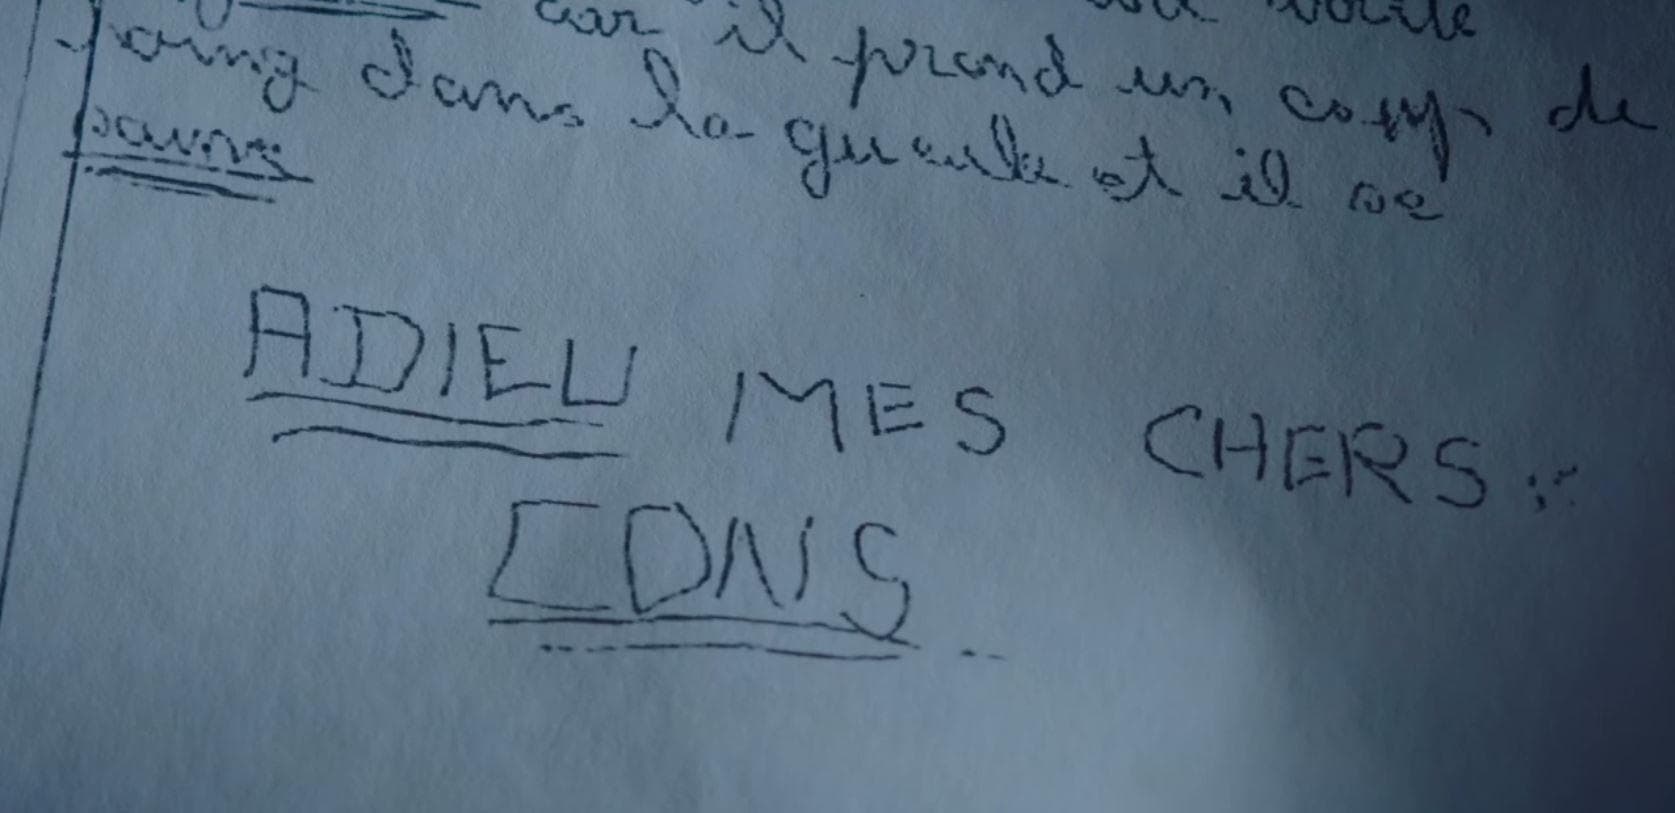 car il prend un coup de
poing dans la gueule et il se
sauve
ADIEU MES CHERS...
CONS...